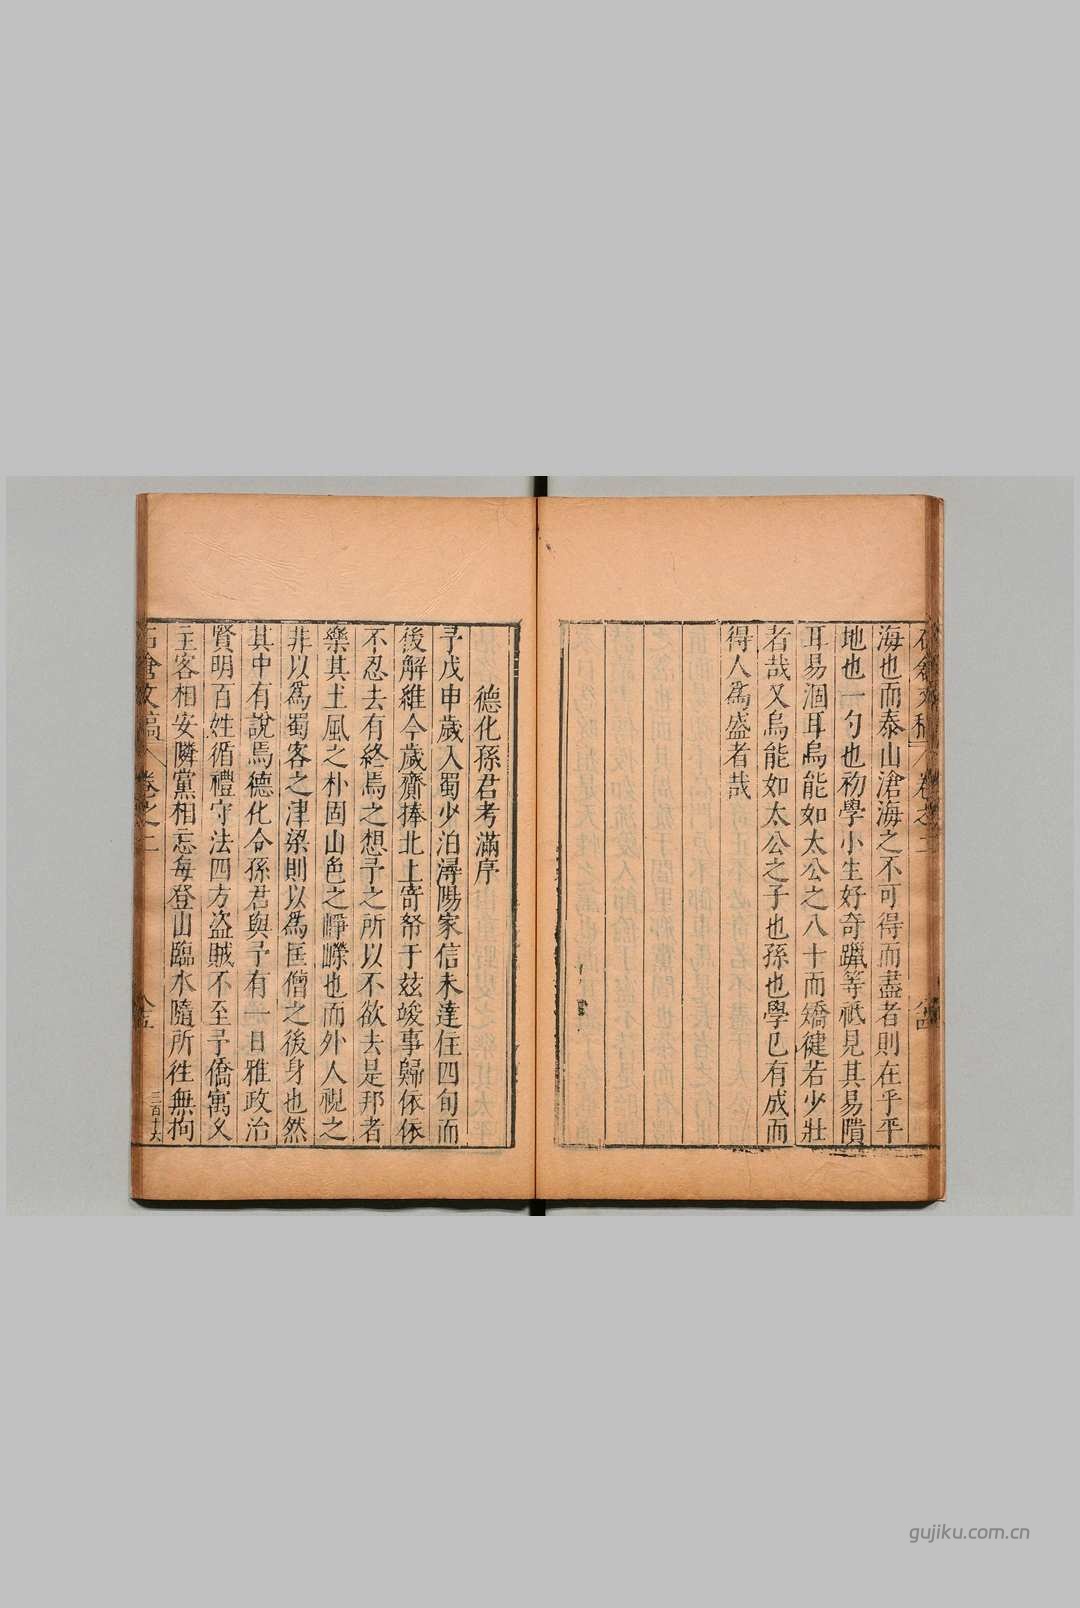 海也而泰山滄海之不可得而盡者則在乎平
地也一勺也初學小生好奇躐等祇見其易隤
耳易涸耳烏能如太公之八十而矯健若少壯
者哉又烏能如太公之子也孫也學已有成而
得人爲盛者哉
德化孫君考滿序
予戊申歲入蜀少泊潯陽家信未達住四旬而
後解維今歲齎捧北上寄帑于玆竣事歸依依
不忍去有終焉之想予之所以不欲去是邦者
樂其土風之朴固山色之崢嶸也而外人視之
非以爲蜀客之津梁則以爲匡僧之後身也然
其中有說焉德化令孫君與予有一日雅政治
賢明百姓循禮守法四方盜賊不至予僑寓又
主客相安隣黨相忘每登山臨水隨所徃無拘
石倉文稿 卷之二
三百十六
gujiku.com.cn